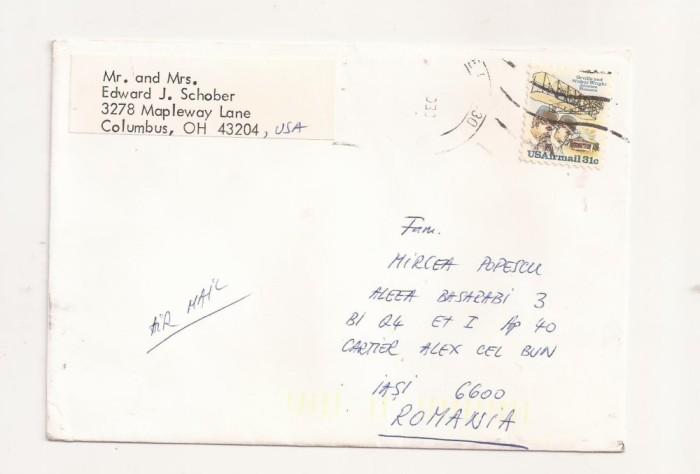 Mr. and Mrs.
Edward J. Schober
3278 Mapleway Lane
Columbus, OH 43204, USA
DEC
30
Orville and
Wilbur Wright
Aviation
Pioneers
USAirmail 31c
Fam.
MIRCEA POPESCU
ALEEA BASARABI 3
Bl Q4 ET I Ap 40
CARTIER ALEX CEL BUN
IAȘI 6600
ROMANIA
AIR MAIL